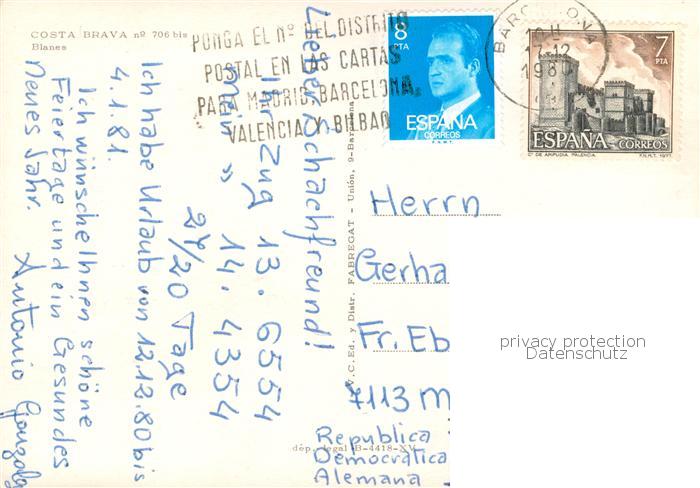 COSTA BRAVA nº 706 bis
Blanes
PONGA EL Nº DEL DISTRITO
POSTAL EN LAS CARTAS
PARA MADRID, BARCELONA,
VALENCIA Y BILBAO
8
PTA
ESPAÑA
CORREOS
F.N.M.T.
BARCELONA
17-12
1980
7
PTA
ESPAÑA CORREOS
Cº DE AMPUDIA. PALENCIA. F.N.M.T. 1977
Lieber Schachfreund!
Ihr Zug 13. 6554
mein » 14. 4354
24/20 Tage
Ich habe Urlaub von 12.12.80 bis
4.1.81.
Ich wünsche Ihnen schöne
Feiertage und ein Gesundes
Neues Jahr.
Antonio
V.C.Ed. y Distr. FABREGAT - Unión, 9-Barcelona
dép. legal B-4418-XV
Herrn
Gerha
Fr. Eb
7113 M
Republica
Democrática
Alemana
privacy protection
Datenschutz